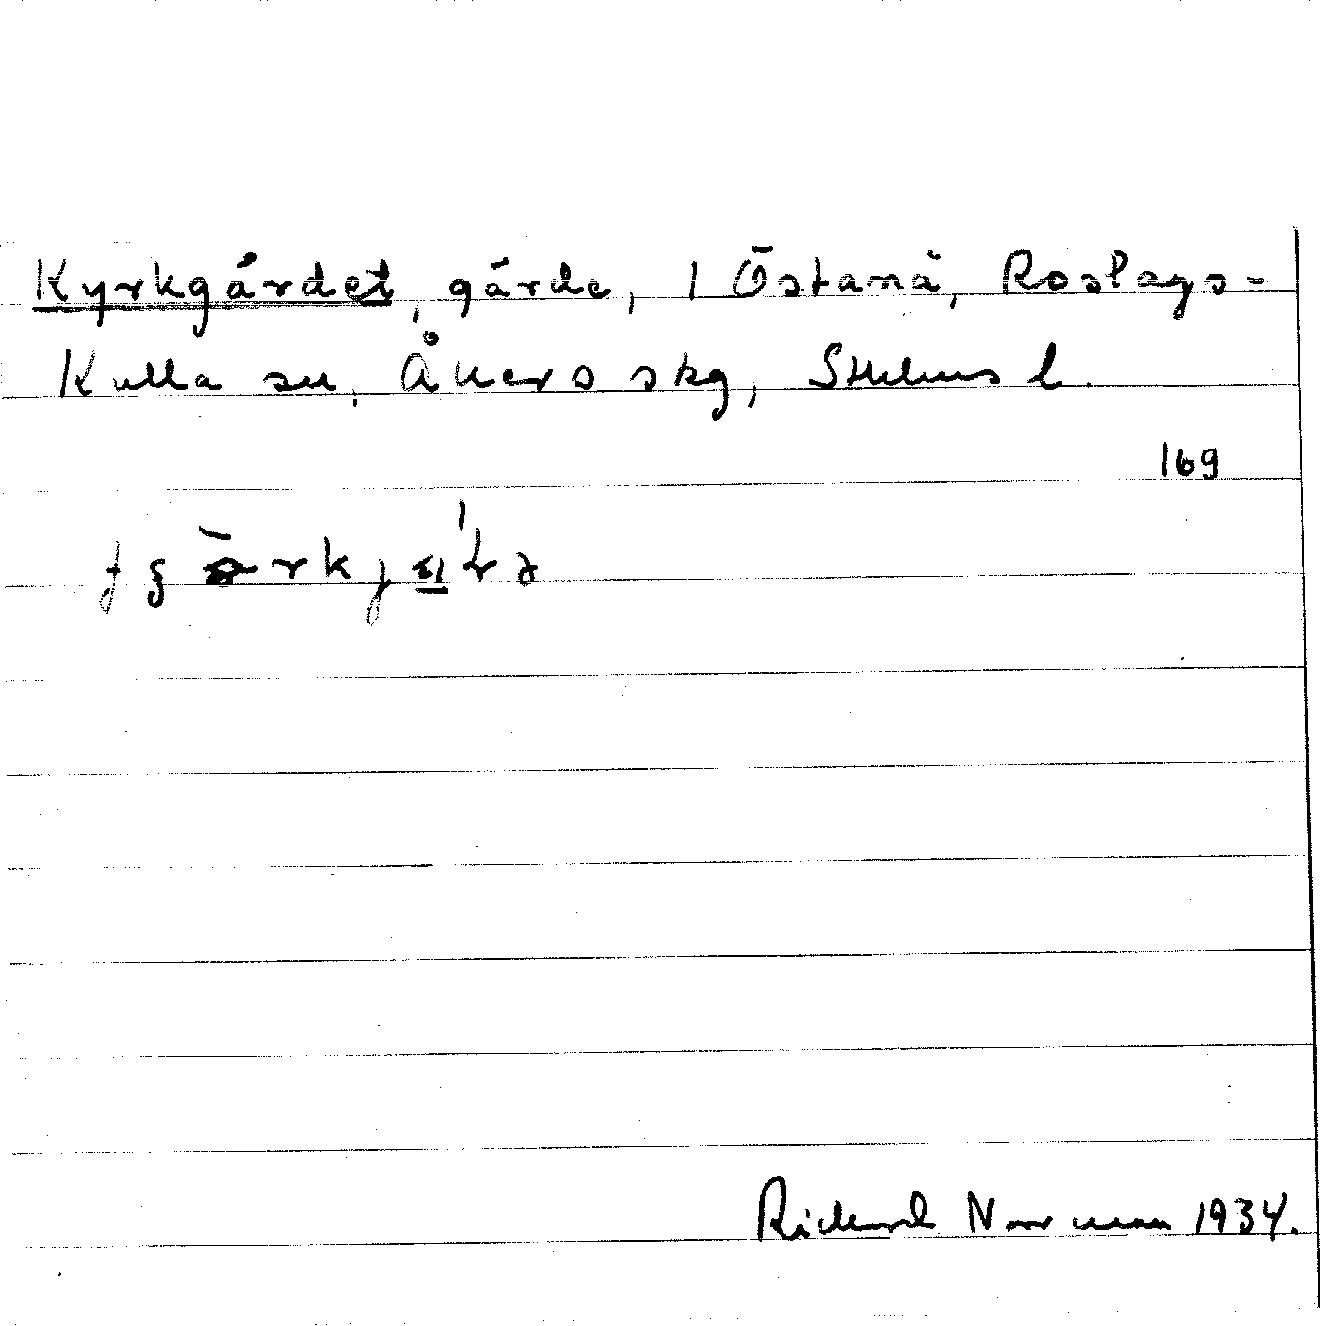 Kyrkgärdet, gärde, 1 Östanå, Roslags-
Kulla sn, Åkers skg, Sthlms l.
169
Rickard Norrman 1934.